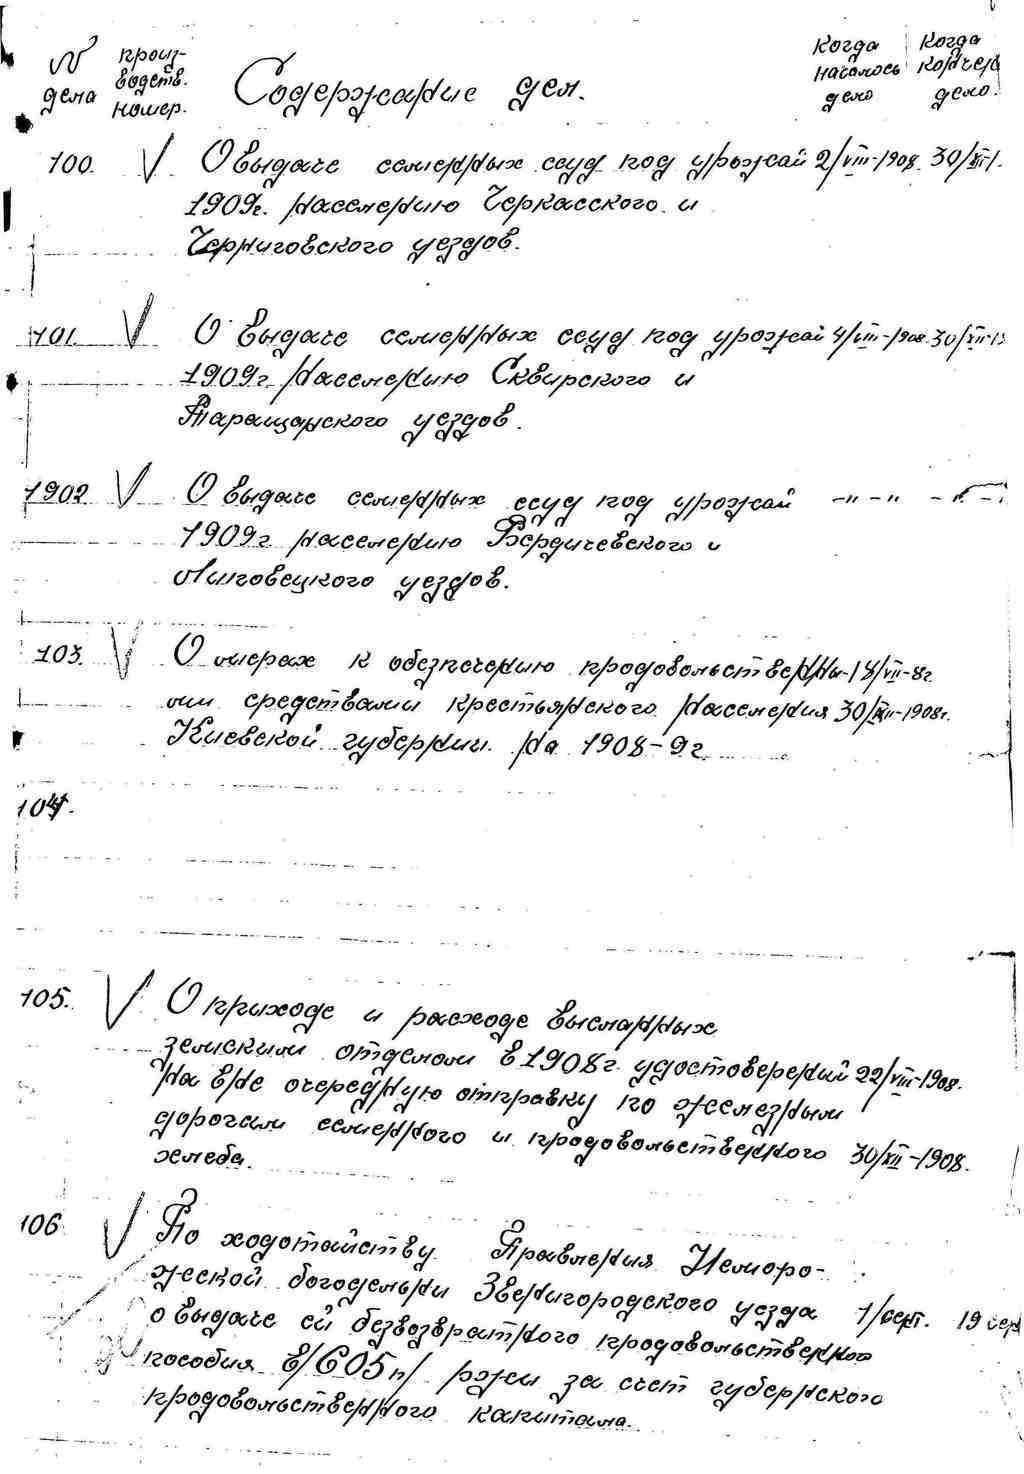 № дела произ-водств. номер. Содержание дел. Когда началось дело Когда кончен. дело.
100. V О выдаче семенных ссуд под урожай 2/VIII-1908. 30/XII-1.
1909г. населению Черкасского и
Черниговского уездов.
101. V О выдаче семенных ссуд под урожай 4/VIII-1908. 30/XII-1
1909г. населению Сквирского и
Таращанского уездов.
1902 V О выдаче семенных ссуд под урожай -"- -" - - " -
1909г населению Бердичевского и
Липовецкого уездов.
103. V О мерах к обезпечению продовольственны- 18/VII-8г.
ми средствами крестьянского населения 30/XII-1908г.
Киевской губернии на 1908-9г.
104.
105. V О приходе и расходе высланных
земским отделом в 1908г. удостоверений 22/VIII-1908.
на вне очередную отправку по железным
дорогам семенного и продовольственного 30/XII-1908.
хлеба.
106 V По ходотайству Правления Неморо-
жеской богодельни Звенигородского уезда 1/сент. 19 сен
о выдаче ей безвозвратного продовольственного
пособия в/605 п/ ржи за счет губернского
продовольственного капитала.